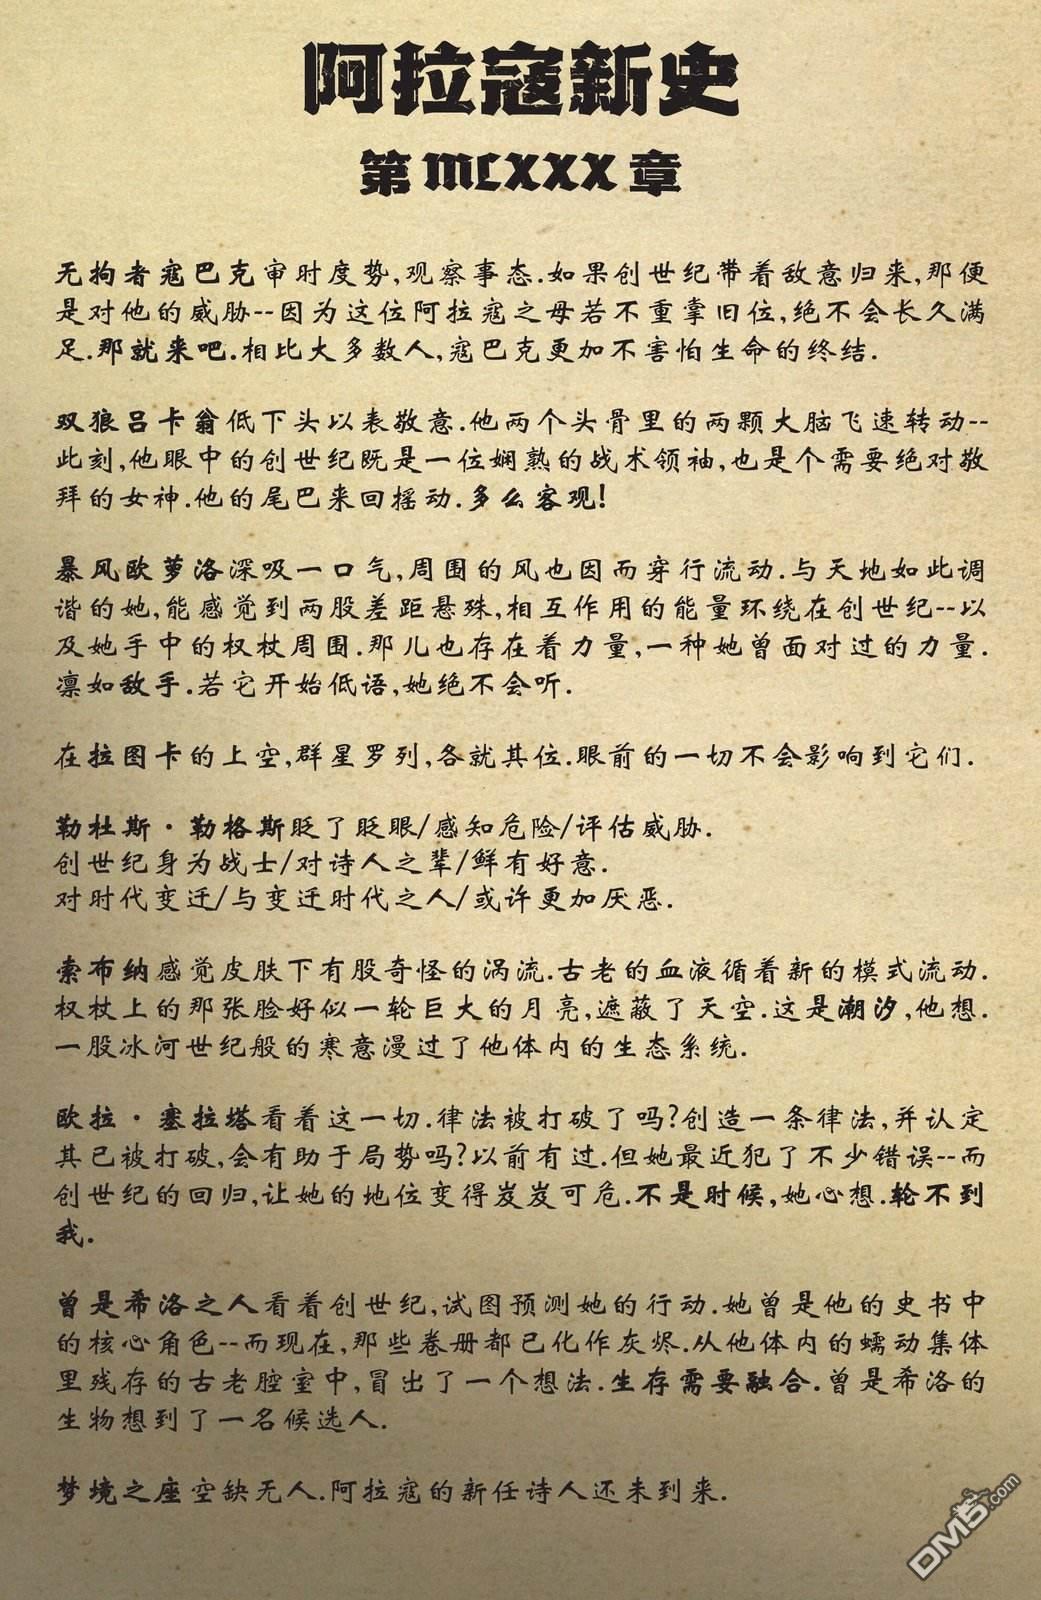 阿拉寇新史
第MCXXX章
无拘者寇巴克审时度势,观察事态.如果创世纪带着敌意归来,那便
是对他的威胁--因为这位阿拉寇之母若不重掌旧位,绝不会长久满
足.那就来吧.相比大多数人,寇巴克更加不害怕生命的终结.
双狼吕卡翁低下头以表敬意.他两个头骨里的两颗大脑飞速转动--
此刻,他眼中的创世纪既是一位娴熟的战术领袖,也是个需要绝对敬
拜的女神.他的尾巴来回摇动.多么客观!
暴风欧萝洛深吸一口气,周围的风也因而穿行流动.与天地如此调
谐的她,能感觉到两股差距悬殊,相互作用的能量环绕在创世纪--以
及她手中的权杖周围.那儿也存在着力量,一种她曾面对过的力量.
凛如敌手.若它开始低语,她绝不会听.
在拉图卡的上空,群星罗列,各就其位.眼前的一切不会影响到它们.
勒杜斯·勒格斯眨了眨眼/感知危险/评估威胁.
创世纪身为战士/对诗人之辈/鲜有好意.
对时代变迁/与变迁时代之人/或许更加厌恶.
索布纳感觉皮肤下有股奇怪的涡流.古老的血液循着新的模式流动.
权杖上的那张脸好似一轮巨大的月亮,遮蔽了天空.这是潮汐,他想.
一股冰河世纪般的寒意漫过了他体内的生态系统.
欧拉·塞拉塔看着这一切.律法被打破了吗?创造一条律法,并认定
其已被打破,会有助于局势吗?以前有过.但她最近犯了不少错误--而
创世纪的回归,让她的地位变得岌岌可危.不是时候,她心想.轮不到
我.
曾是希洛之人看着创世纪,试图预测她的行动.她曾是他的史书中
的核心角色--而现在,那些卷册都已化作灰烬.从他体内的蠕动集体
里残存的古老腔室中,冒出了一个想法.生存需要融合.曾是希洛的
生物想到了一名候选人.
梦境之座空缺无人.阿拉寇的新任诗人还未到来.
DM5.com